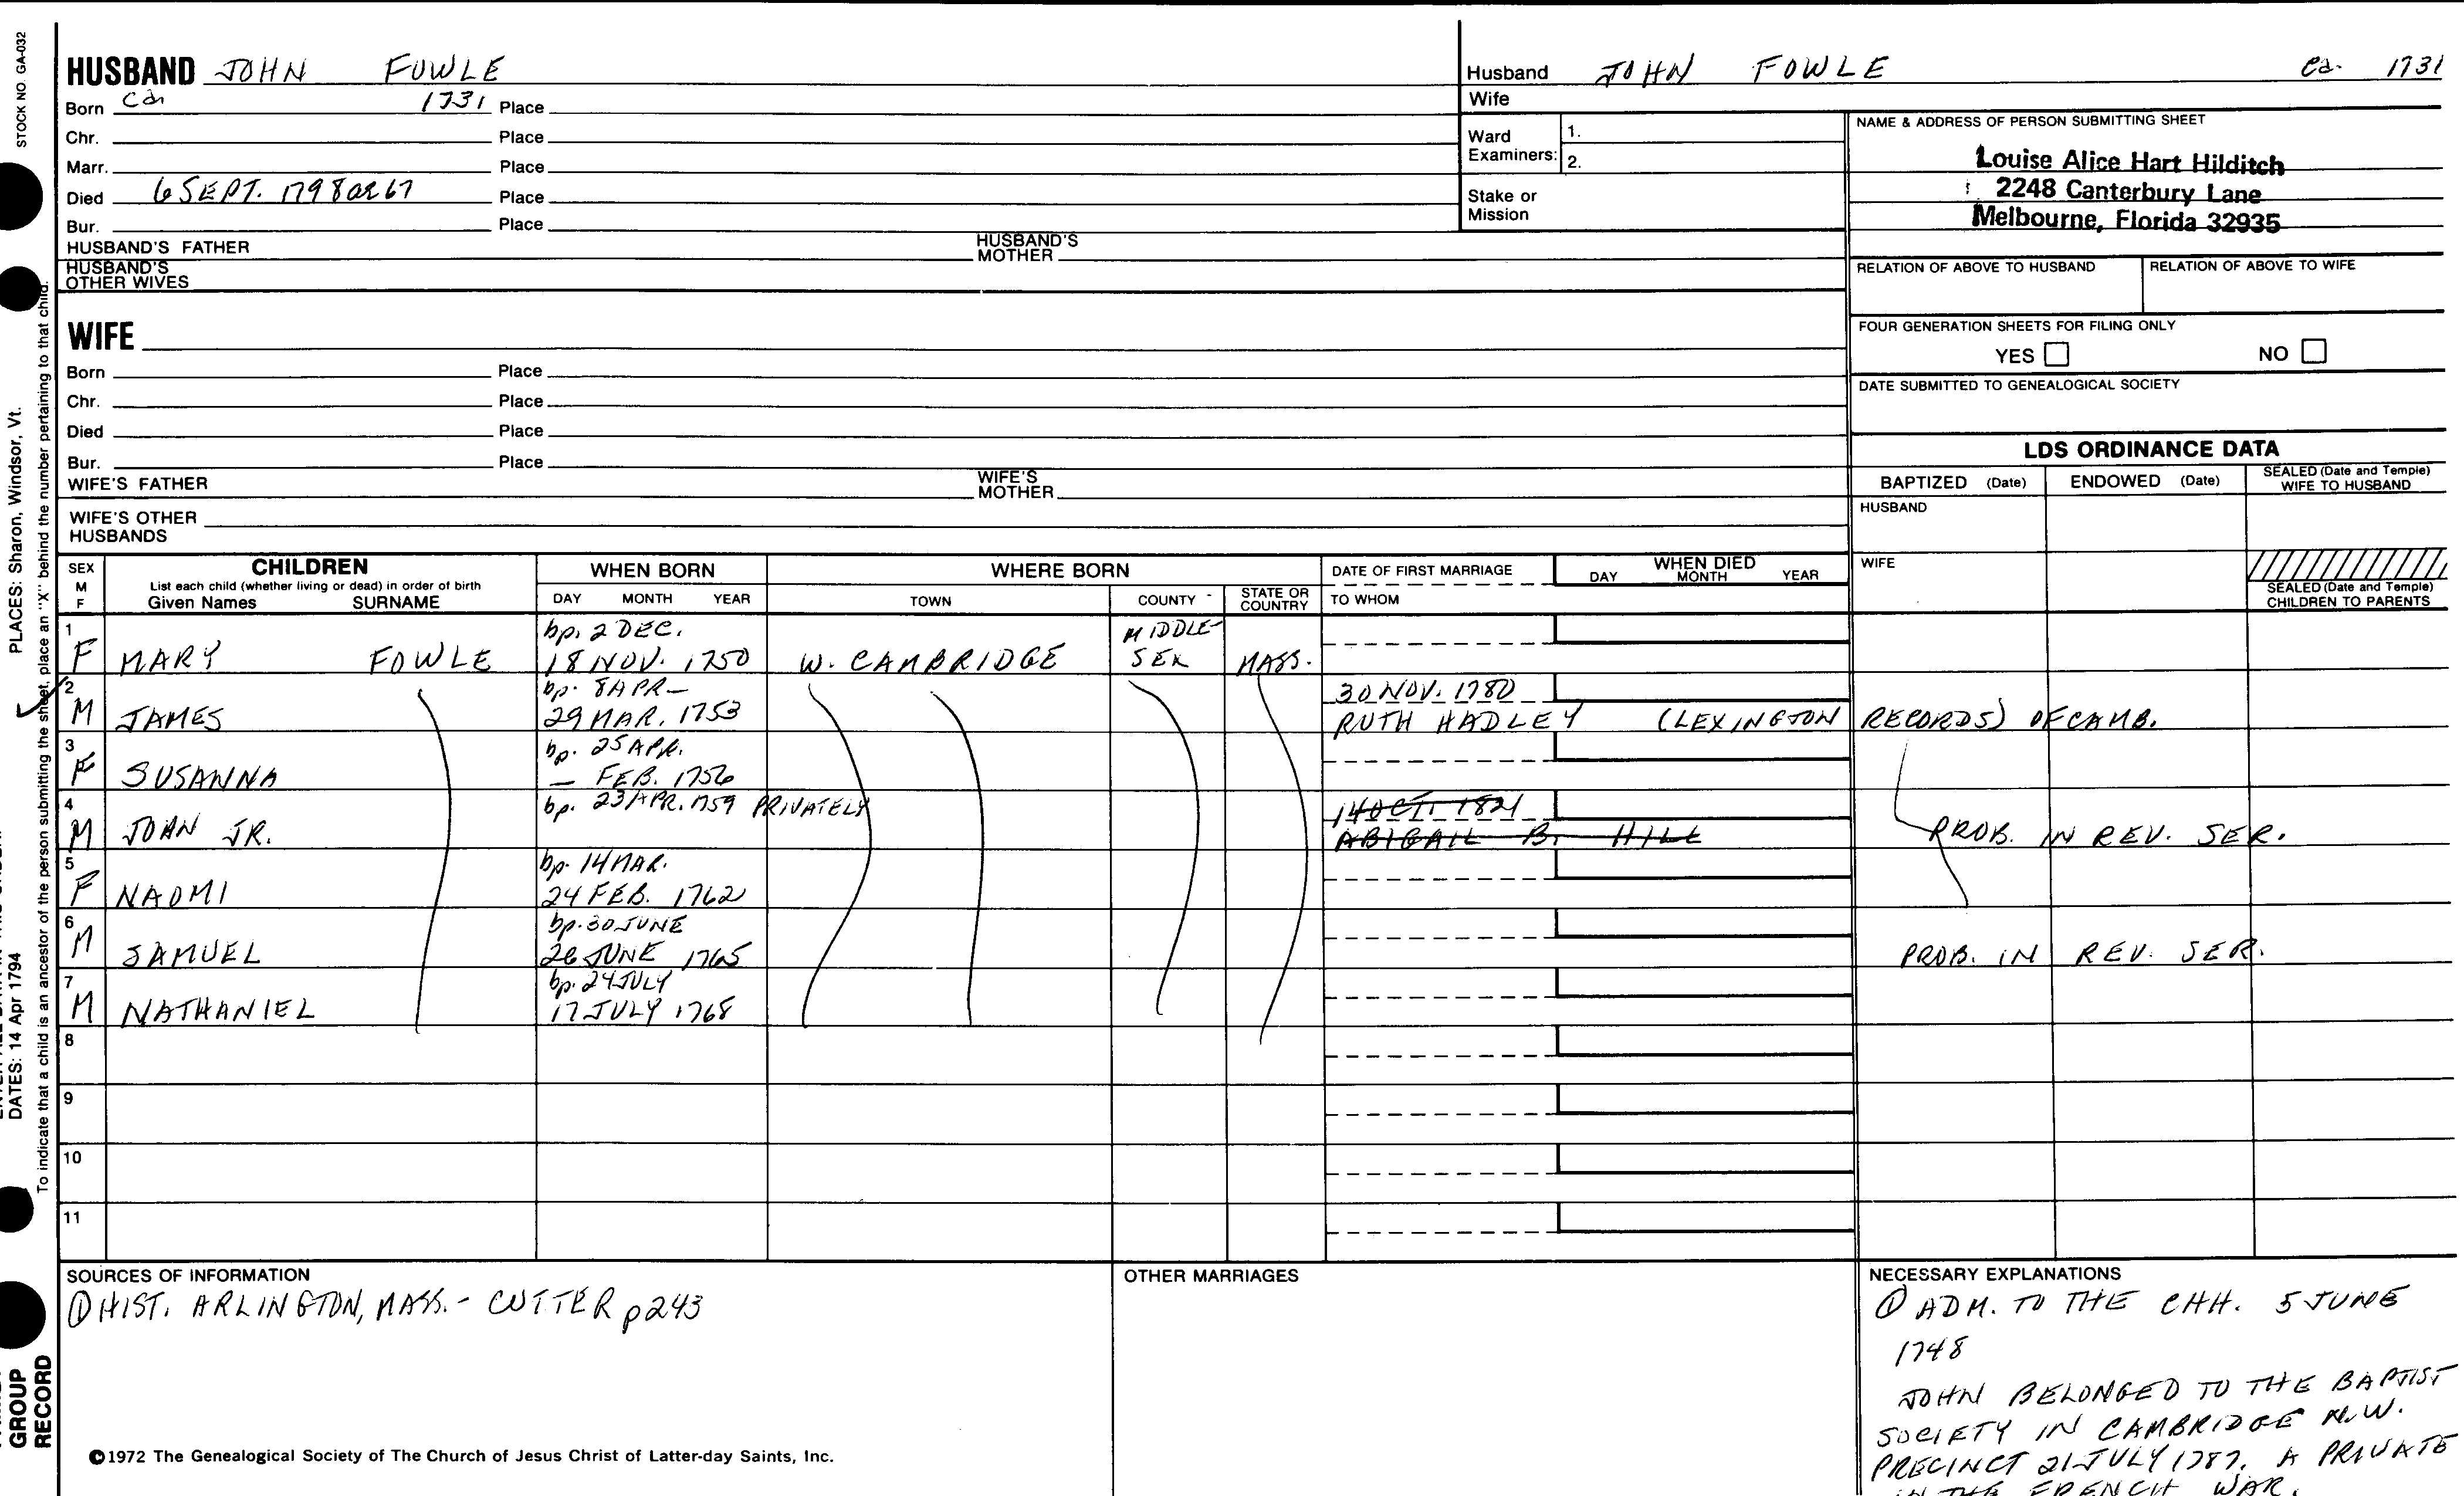 STOCK NO. GA-032
HUSBAND JOHN FOWLE
Born Ca 1731 Place
Chr. Place
Marr. Place
Died 6 SEPT. 1798 Place
Bur. Place
HUSBAND'S FATHER HUSBAND'S MOTHER
HUSBAND'S OTHER WIVES
WIFE
Born Place
Chr. Place
Died Place
Bur. Place
WIFE'S FATHER WIFE'S MOTHER
WIFE'S OTHER HUSBANDS
Husband JOHN FOWLE ca. 1731
Wife
Ward Examiners: 1.
2.
Stake or Mission
NAME & ADDRESS OF PERSON SUBMITTING SHEET
Louise Alice Hart Hilditch
2248 Canterbury Lane
Melbourne, Florida 32935
RELATION OF ABOVE TO HUSBAND RELATION OF ABOVE TO WIFE
FOUR GENERATION SHEETS FOR FILING ONLY
YES NO
DATE SUBMITTED TO GENEALOGICAL SOCIETY
LDS ORDINANCE DATA
BAPTIZED (Date) ENDOWED (Date) SEALED (Date and Temple) WIFE TO HUSBAND
HUSBAND
WIFE
SEALED (Date and Temple) CHILDREN TO PARENTS
SEX M F
CHILDREN
List each child (whether living or dead) in order of birth
Given Names SURNAME
WHEN BORN
DAY MONTH YEAR
WHERE BORN
TOWN COUNTY STATE OR COUNTRY
DATE OF FIRST MARRIAGE
TO WHOM
WHEN DIED
DAY MONTH YEAR
1 bp. 2 DEC. MIDDLE-
F MARY FOWLE 18 NOV. 1750 W. CAMBRIDGE SEX MASS.
2 bp. 8 APR- 30 NOV. 1780
M JAMES 29 MAR. 1753 RUTH HADLEY (LEXINGTON RECORDS) OF CAMB.
3 bp. 25 APR.
F SUSANNA — FEB. 1756
4 bp. 23 APR. 1759 PRIVATELY 14 OCT. 1821
M JOHN JR. ABIGAIL B. HILL PROB. IN REV. SER.
5 bp. 14 MAR.
F NAOMI 24 FEB. 1762
6 bp. 30 JUNE
M SAMUEL 26 JUNE 1765 PROB. IN REV. SER.
7 bp. 24 JULY
M NATHANIEL 17 JULY 1768
8
9
10
11
SOURCES OF INFORMATION
① HIST. ARLINGTON, MASS. - CUTTER p243
OTHER MARRIAGES
NECESSARY EXPLANATIONS
① ADM. TO THE CHH. 5 JUNE
1748
JOHN BELONGED TO THE BAPTIST
SOCIETY IN CAMBRIDGE N.W.
PRECINCT 21 JULY 1787. A PRIVATE
IN THE FRENCH WAR.
©1972 The Genealogical Society of The Church of Jesus Christ of Latter-day Saints, Inc.
PLACES: Sharon, Windsor, Vt.
DATES: 14 Apr 1794
To indicate that a child is an ancestor of the person submitting the sheet, place an "X" behind the number pertaining to that child.
GROUP
RECORD